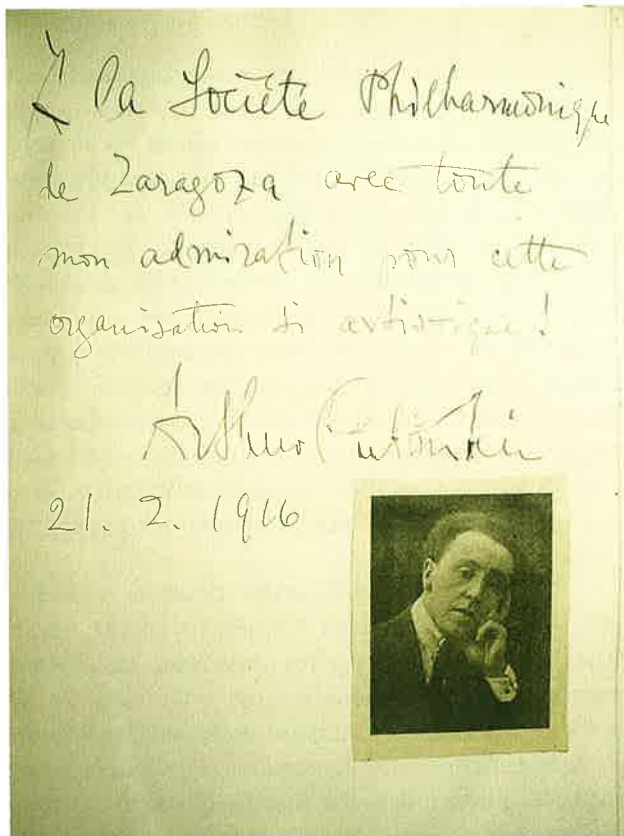 À la Société Philharmonique
de Zaragoza avec toute
mon admiration pour cette
organisation si artistique!
Arthur Rubinstein
21. 2. 1916